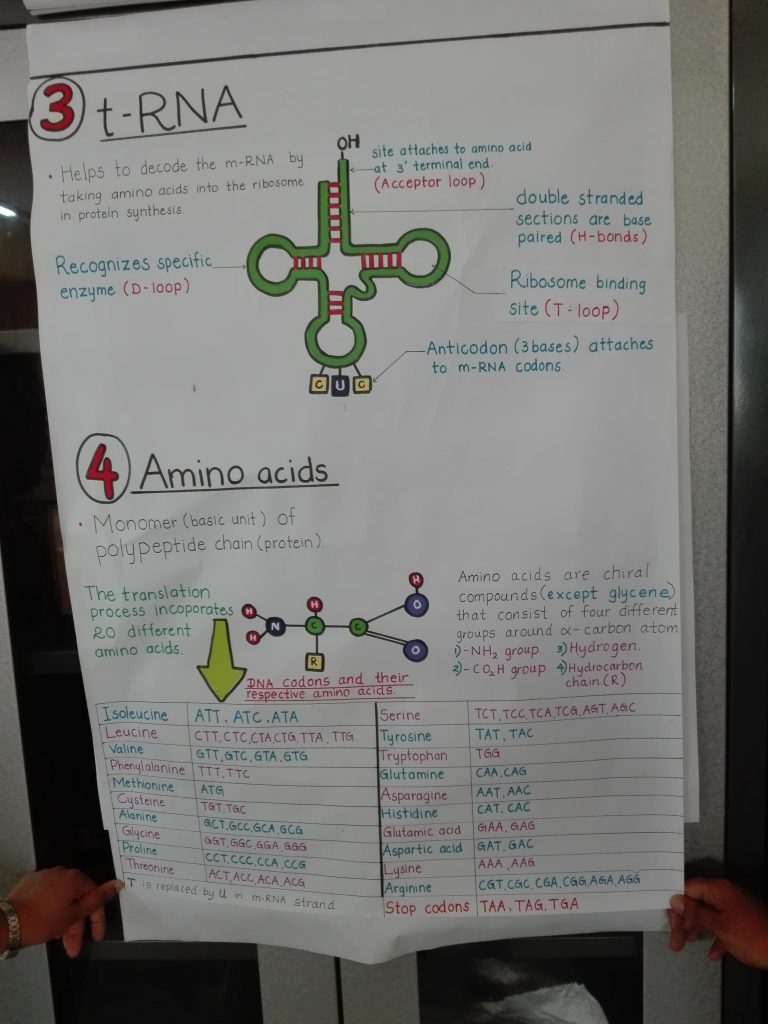 3 t-RNA
• Helps to decode the m-RNA by
taking amino acids into the ribosome
in protein synthesis.
OH
site attaches to amino acid
at 3' terminal end.
(Acceptor loop)
double stranded
sections are base
paired (H-bonds)
Recognizes specific
enzyme (D-loop)
Ribosome binding
site (T-loop)
Anticodon (3 bases) attaches
to m-RNA codons.
C U C
4 Amino acids
• Monomer (basic unit) of
polypeptide chain (protein).
The translation
process incoporates
20 different
amino acids.
H
H
N
H
C
R
C
H
O
O
Amino acids are chiral
compounds (except glycene)
that consist of four different
groups around α-carbon atom
1) -NH₂ group 3) Hydrogen.
2) -CO₂H group 4) Hydrocarbon
chain.(R)
DNA codons and their
respective amino acids.
Isoleucine ATT, ATC, ATA
Leucine CTT, CTC, CTA, CTG, TTA, TTG
Valine GTT, GTC, GTA, GTG
Phenylalanine TTT, TTC
Methionine ATG
Cysteine TGT, TGC
Alanine GCT, GCC, GCA, GCG
Glycine GGT, GGC, GGA, GGG
Proline CCT, CCC, CCA, CCG
Threonine ACT, ACC, ACA, ACG
T is replaced by U in m-RNA strand.
Serine TCT, TCC, TCA, TCG, AGT, AGC
Tyrosine TAT, TAC
Tryptophan TGG
Glutamine CAA, CAG
Asparagine AAT, AAC
Histidine CAT, CAC
Glutamic acid GAA, GAG
Aspartic acid GAT, GAC
Lysine AAA, AAG
Arginine CGT, CGC, CGA, CGG, AGA, AGG
Stop codons TAA, TAG, TGA